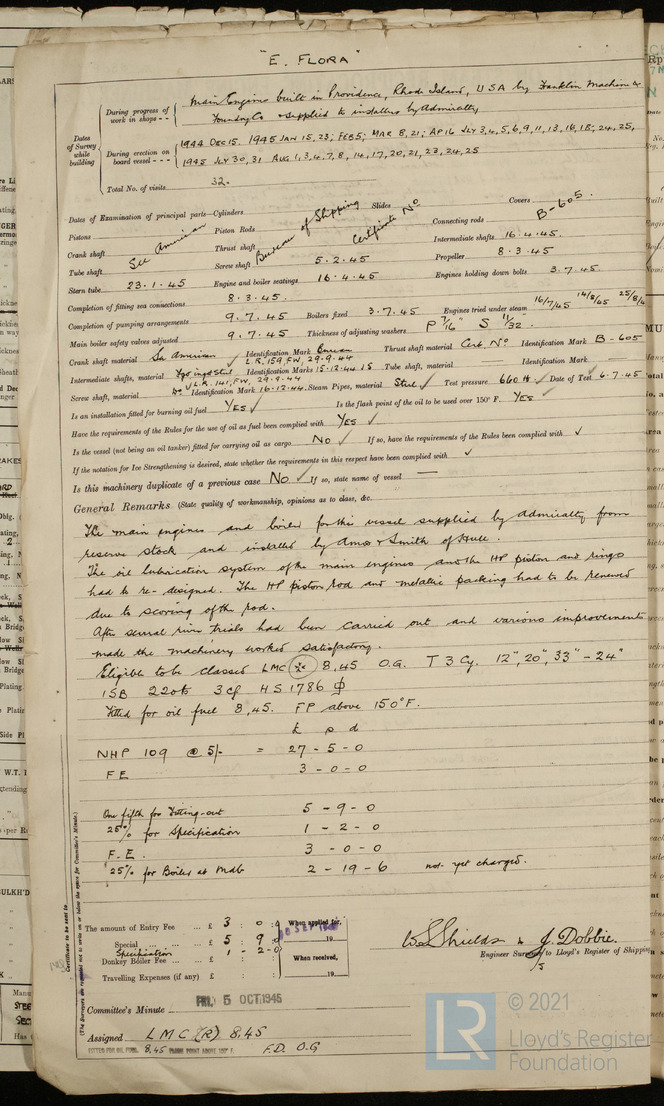 "E. FLORA"
Dates of Survey while building
During progress of work in shops - - Main Engines built in Providence, Rhode Island, USA by Franklin Machine &
Foundry Co & supplied to installers by Admiralty
During erection on board vessel - - - 1944 DEC 15. 1945 JAN 15, 23; FEB 5; MAR 8, 21; AP 16 JLY 3, 4, 5, 6, 9, 11, 13, 16, 18, 24, 25,
1945 JLY 30, 31 AUG 1, 3, 4, 7, 8, 14, 17, 20, 21, 23, 24, 25
Total No. of visits 32.
Dates of Examination of principal parts—Cylinders Slides Covers
Pistons Piston Rods Connecting rods
See American Bureau of Shipping Certificate No B-605.
Crank shaft Thrust shaft Intermediate shafts 16.4.45.
Tube shaft Screw shaft 5.2.45 Propeller 8.3.45
Stern tube 23.1.45 Engine and boiler seatings 16.4.45 Engines holding down bolts 3.7.45
Completion of fitting sea connections 8.3.45.
Completion of pumping arrangements 9.7.45 Boilers fixed 3.7.45 Engines tried under steam 16/7/45 14/8/45 25/8/4
Main boiler safety valves adjusted 9.7.45 Thickness of adjusting washers P 7/16" S 11/32"
Crank shaft material See American Identification Mark Bureau Thrust shaft material Cert. No Identification Mark B-605
Intermediate shafts, material Ingot Steel Identification Marks L.R. 159 FW, 29.9.44 15.12.44 Tube shaft, material Identification Mark
Screw shaft, material Do Identification Mark L.R. 141, FW, 29.9.44 16.12.44 Steam Pipes, material Steel Test pressure 660 lb Date of Test 6.7.45
Is an installation fitted for burning oil fuel YES Is the flash point of the oil to be used over 150° F. YES
Have the requirements of the Rules for the use of oil as fuel been complied with YES
Is the vessel (not being an oil tanker) fitted for carrying oil as cargo No If so, have the requirements of the Rules been complied with
If the notation for Ice Strengthening is desired, state whether the requirements in this respect have been complied with
Is this machinery duplicate of a previous case No If so, state name of vessel
General Remarks (State quality of workmanship, opinions as to class, &c.
The main engines and boiler for this vessel supplied by Admiralty from
reserve stock and installed by Amos & Smith of Hull.
The oil lubrication system of the main engines and the HP piston and rings
had to re-designed. The HP piston rod and metallic packing had to be renewed
due to scoring of the rod.
After several river trials had been carried out and various improvements
made the machinery worked satisfactory.
Eligible to be classed LMC 8,45 O.G. T 3 Cy. 12", 20", 33" - 24"
1 SB 220 lb 3 cf HS 1786
Fitted for oil fuel 8,45. FP above 150°F.
£ s d
NHP 109 @ 5/- = 27 - 5 - 0
FE 3 - 0 - 0
One fifth for Fitting-out 5 - 9 - 0
25% for Specification 1 - 2 - 0
F.E. 3 - 0 - 0
25% for Boiler at Mdb 2 - 19 - 6 not yet charged.
The amount of Entry Fee ... £ 3 : 0 : 0 When applied for,
Special ... £ 5 : 9 : 0 19
Specification 1 - 2 - 0
Donkey Boiler Fee ... £ When received,
Travelling Expenses (if any) £ 19
W S Shields & J. Dobbie
Engineer Surveyor/s to Lloyd's Register of Shipping
Committee's Minute FRI. 5 OCT 1945
Assigned LMC (R) 8.45
FITTED FOR OIL FUEL 8.45 FLASH POINT ABOVE 150° F. F.D. O.G
Certificate to be sent to
(The Surveyors are requested not to write on or below the space for Committee's Minute.)
LR
© 2021
Lloyd's Register
Foundation